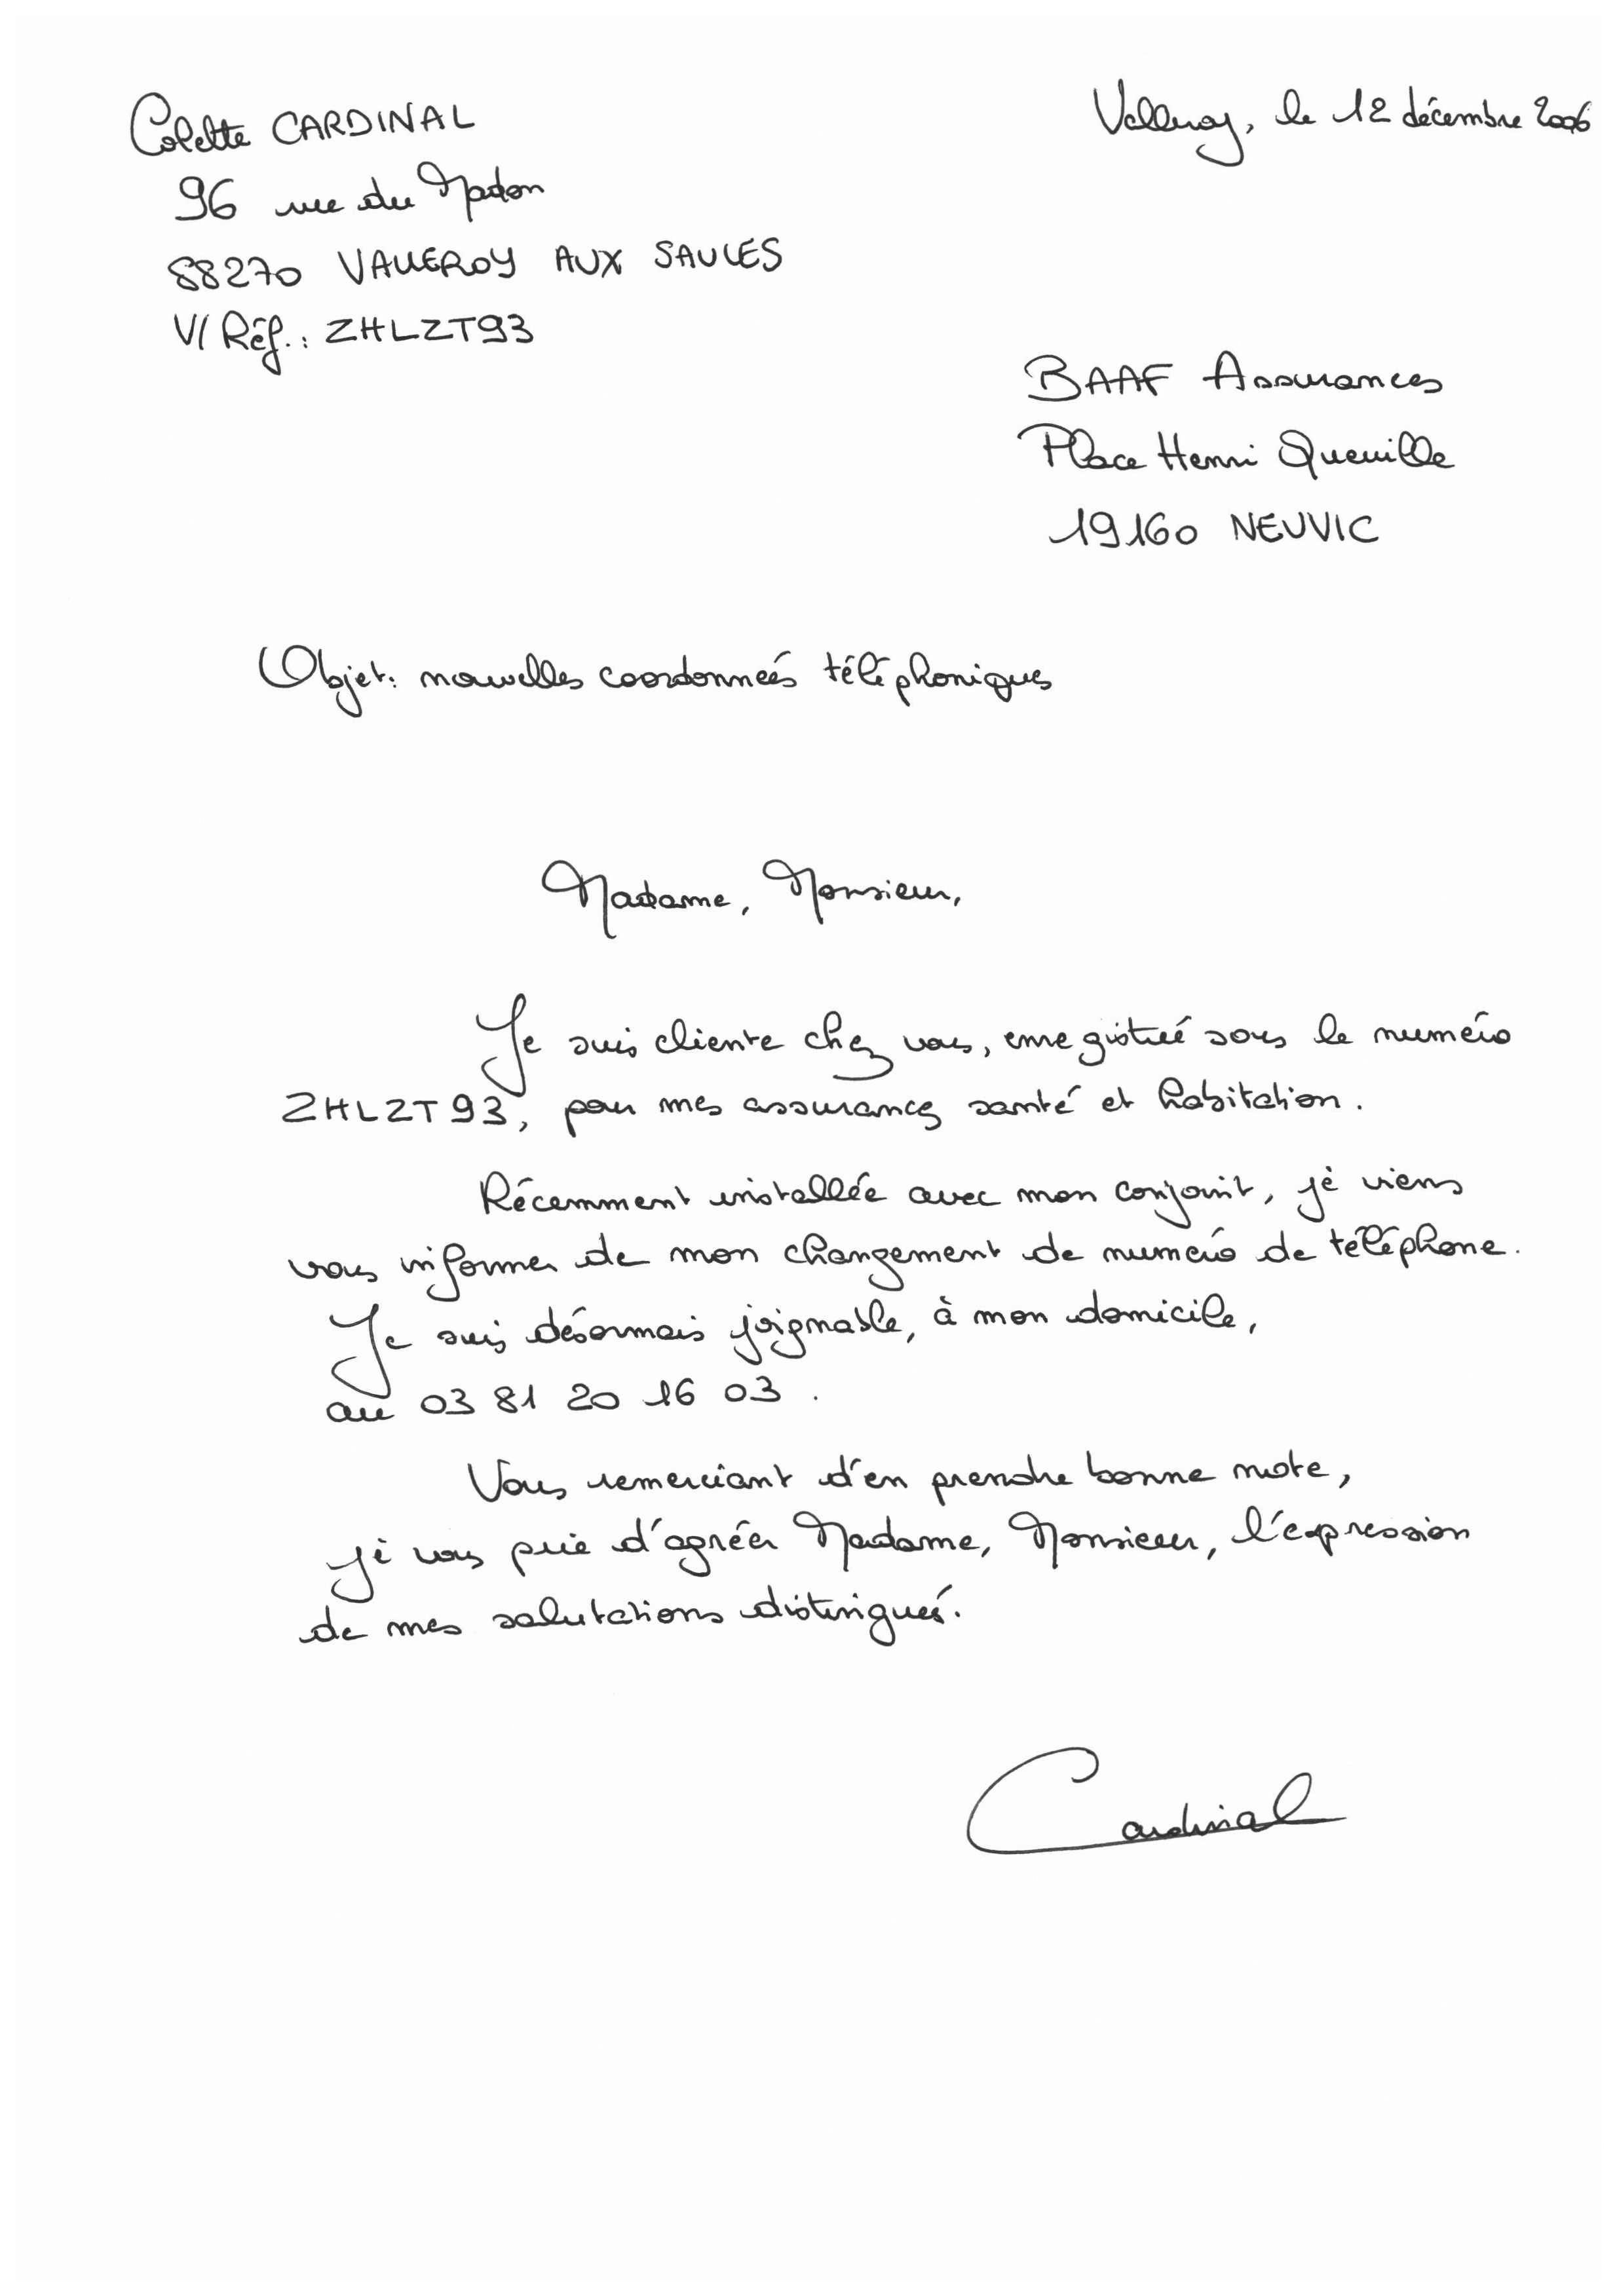 Colette CARDINAL
Valleroy, le 12 décembre 2006
96 rue du Madon
88270 VALLEROY AUX SAULES
V/ Réf.: ZHLZT93
BAAF Assurances
Place Henri Queuille
19160 NEUVIC
Objet: nouvelles coordonnées téléphoniques
Madame, Monsieur,
Je suis cliente chez vous, enregistrée sous le numéro
ZHLZT93, pour mes assurances santé et habitation.
Récemment installée avec mon conjoint, je viens
vous informer de mon changement de numéro de téléphone.
Je suis désormais joignable, à mon domicile,
au 03 81 20 16 03.
Vous remerciant d'en prendre bonne note,
je vous prie d'agréer Madame, Monsieur, l'expression
de mes salutations distingués.
Cardinal